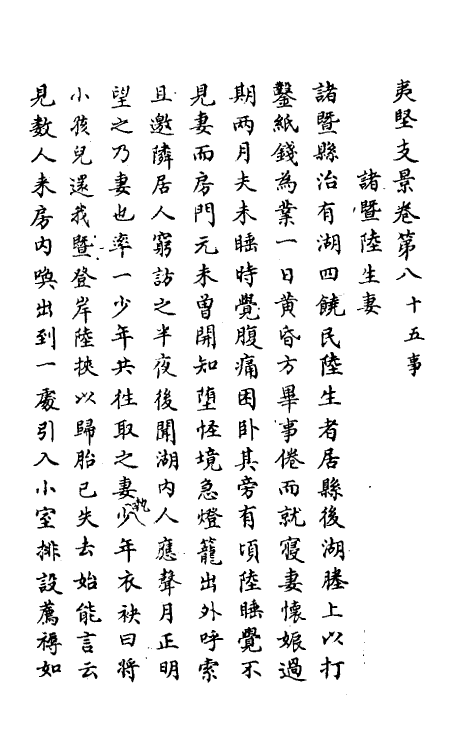 夷堅支景卷第八 十五事
諸暨陸生妻
諸暨縣治有湖四饒民陸生者居縣後湖塍上以打
鑿紙錢為業一日黄昏方畢事倦而就寢妻懷娠過
期兩月夫未睡時覺腹痛困卧其旁有頃陸睡覺不
見妻而房門元未曾開知墮怪境急燈籠出外呼索
且邀隣居人窮訪之半夜後聞湖内人應聲月正明
望之乃妻也率一少年共往取之妻執少年衣袂曰將
小孩兒還我暨登岸陸挾以歸胎已失去始能言云
見數人来房内喚出到一處引入小室排設薦褥如